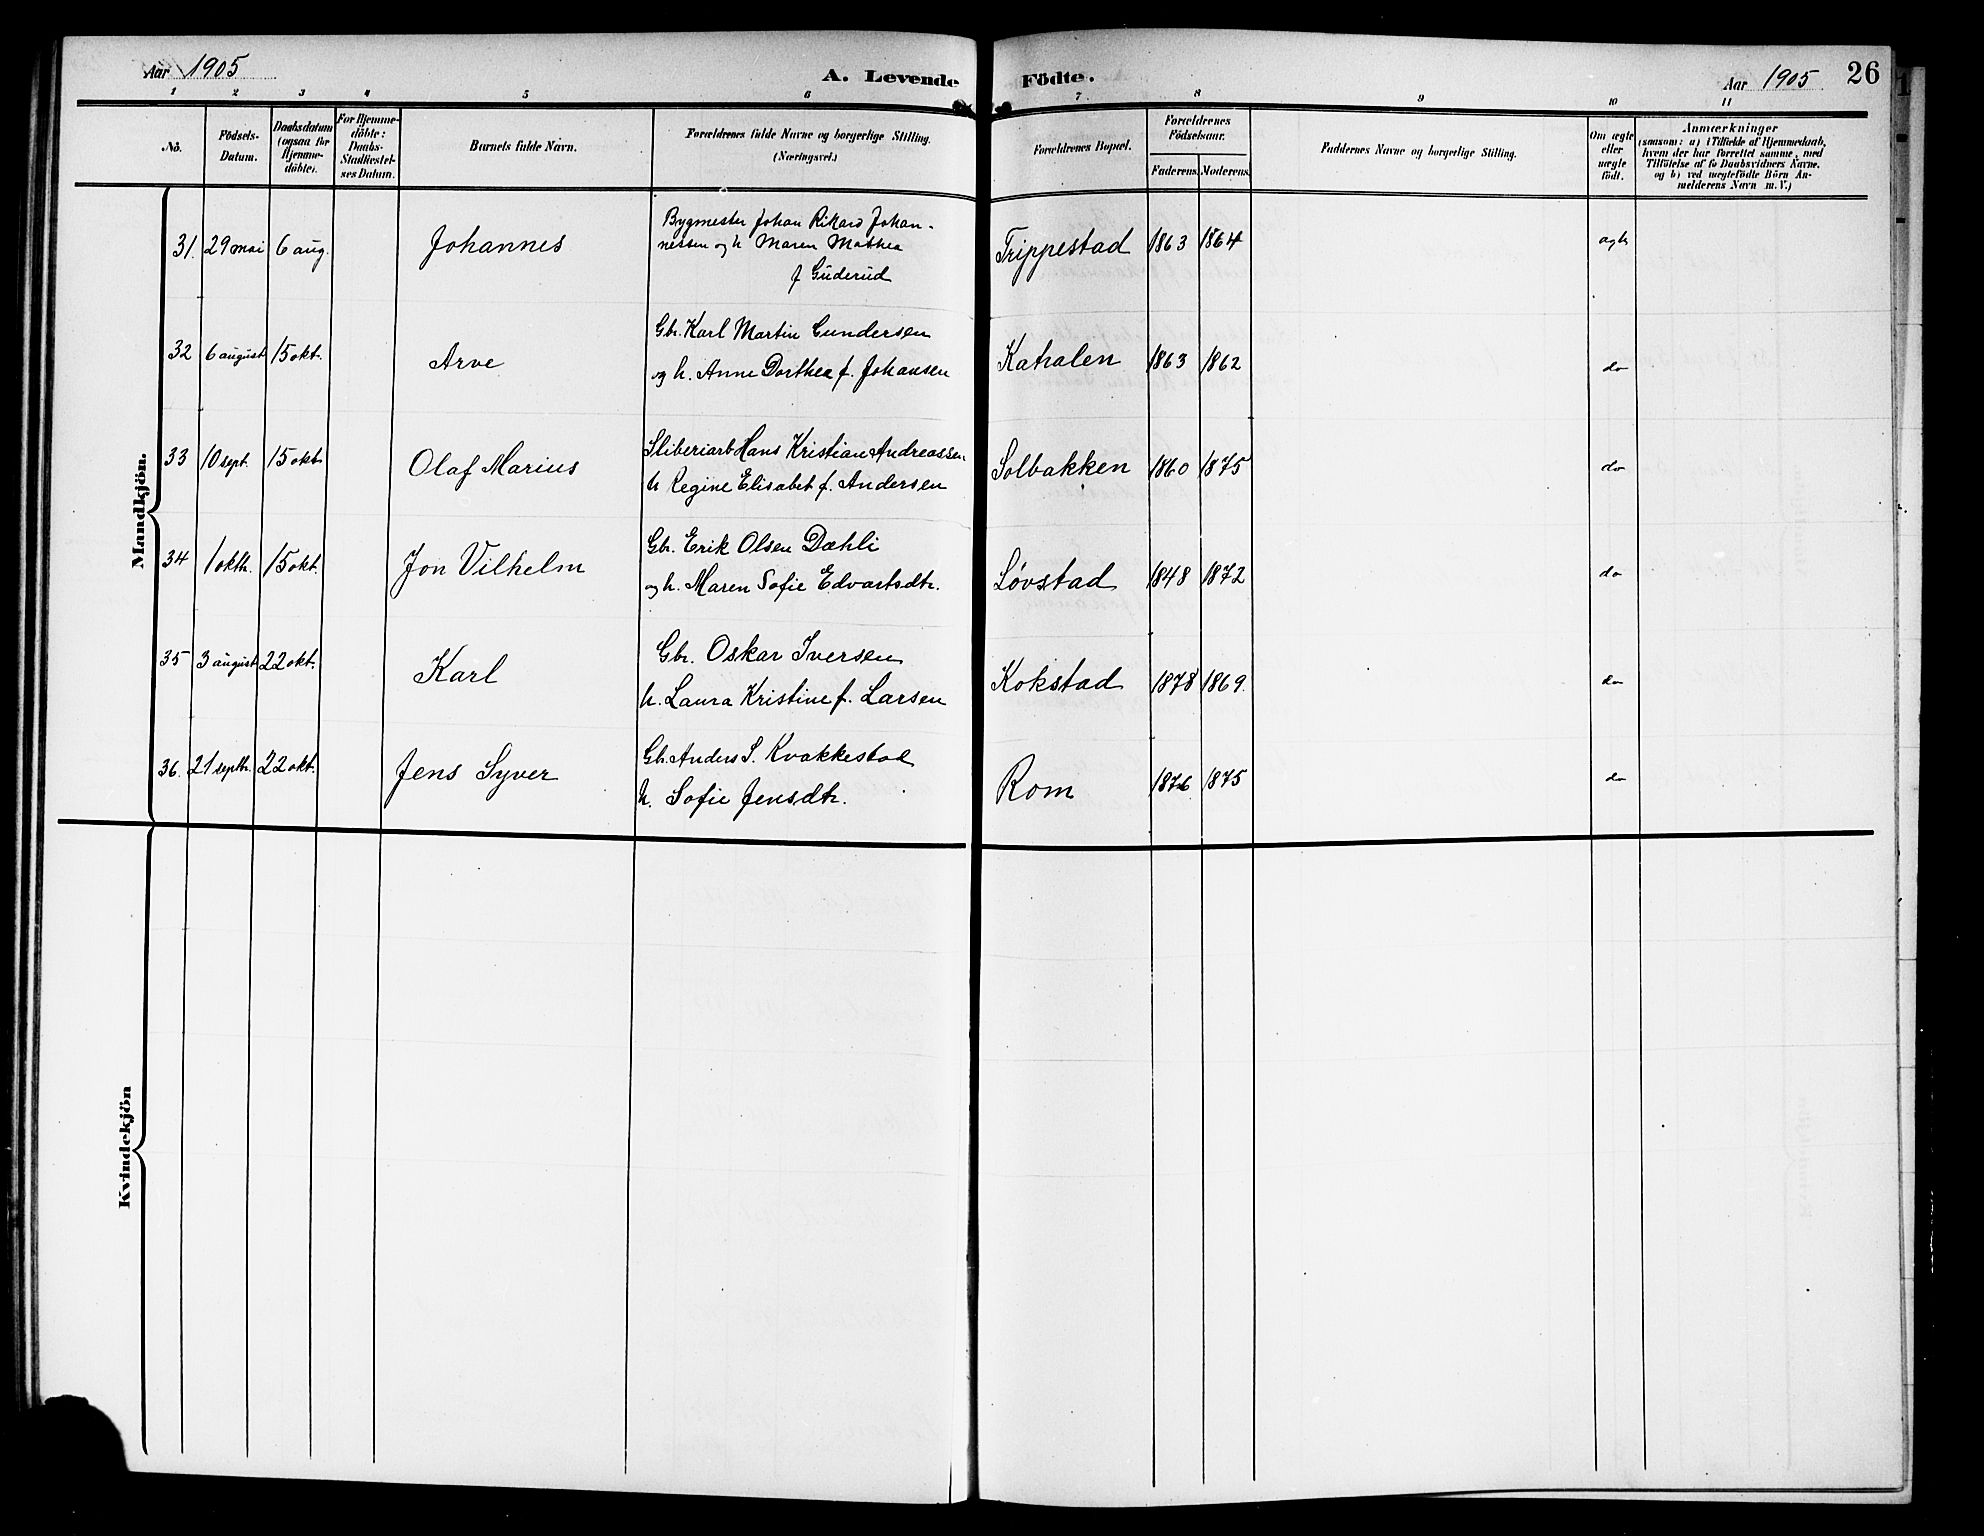 Aar 1905
A. Levende Födte.
Aar 1905 26
1 2 3 4 5 6 7 8 9 10 11
No.
Födsels-
Datum.
Daabsdatum
(ogsaa for
Hjemme-
döbte).
For Hjemme-
döbte:
Daabs-
Stadfæstel-
ses Datum.
Barnets fulde Navn.
Forældrenes fulde Navne og borgerlige Stilling.
(Næringsvei.)
Forældrenes Bopæl.
Forældrenes
Födselsaar.
Faderens. Moderens.
Faddernes Navne og borgerlige Stilling.
Om ægte
eller
uægte
födt.
Anmærkninger
(saasom: a) i Tilfælde af Hjemmedaab,
hvem der har forrettet samme, med
Tilföielse af to Daabsvidners Navne.
og b) ved uægtefödte Börn An-
melderens Navn m. V.)
Mandkjön.
31. 29 mai 6 aug. Johannes
Bygmester Johan Rikard Johan-
nessen og h Maren Mathea
f Guderud
Trippestad 1863 1864 ægte
32 6 august 15 okt. Arve
Gbr. Karl Martin Gundersen
og h. Anne Dorthea f. Johansen
Katralen 1863 1862 do
33 10 sept. 15 okt Olaf Marius
Sliberiarb Hans Kristian Andreassen
h Regine Elisabet f. Andersen
Solbakken 1860 1875 do
34 1 oktb. 15 okt. Jon Vilhelm
Gbr. Erik Olsen Dæhli
og h. Maren Sofie Edvartsdtr.
Løvstad 1848 1872 do
35 3 august 22 okt. Karl
Gbr. Oskar Iversen
h. Laura Kristine f. Larsen
Kokstad 1878 1869. do
36. 21 septb. 22 okt. Jens Syver
Gb. Anders S. Kvakkestad
h. Sofie Jensdtr.
Rom 1876 1875 do
Kvindekjön